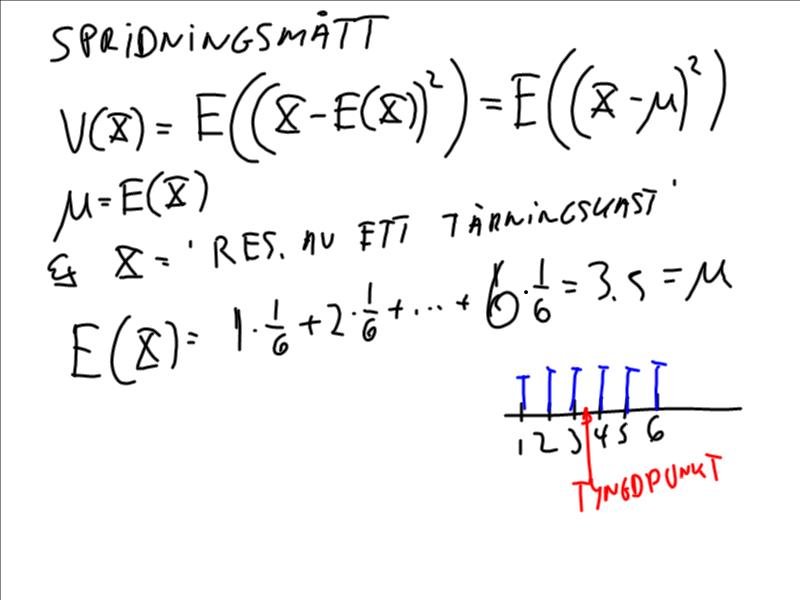 SPRIDNINGSMÅTT
V(X) = E((X-E(X))²) = E((X-μ)²)
μ=E(X)
EX X = 'RES. AV ETT TÄRNINGSKAST'
E(X) = 1·1/6 + 2·1/6 + ... + 6·1/6 = 3.5 = μ
1 2 3 4 5 6
TYNGDPUNKT